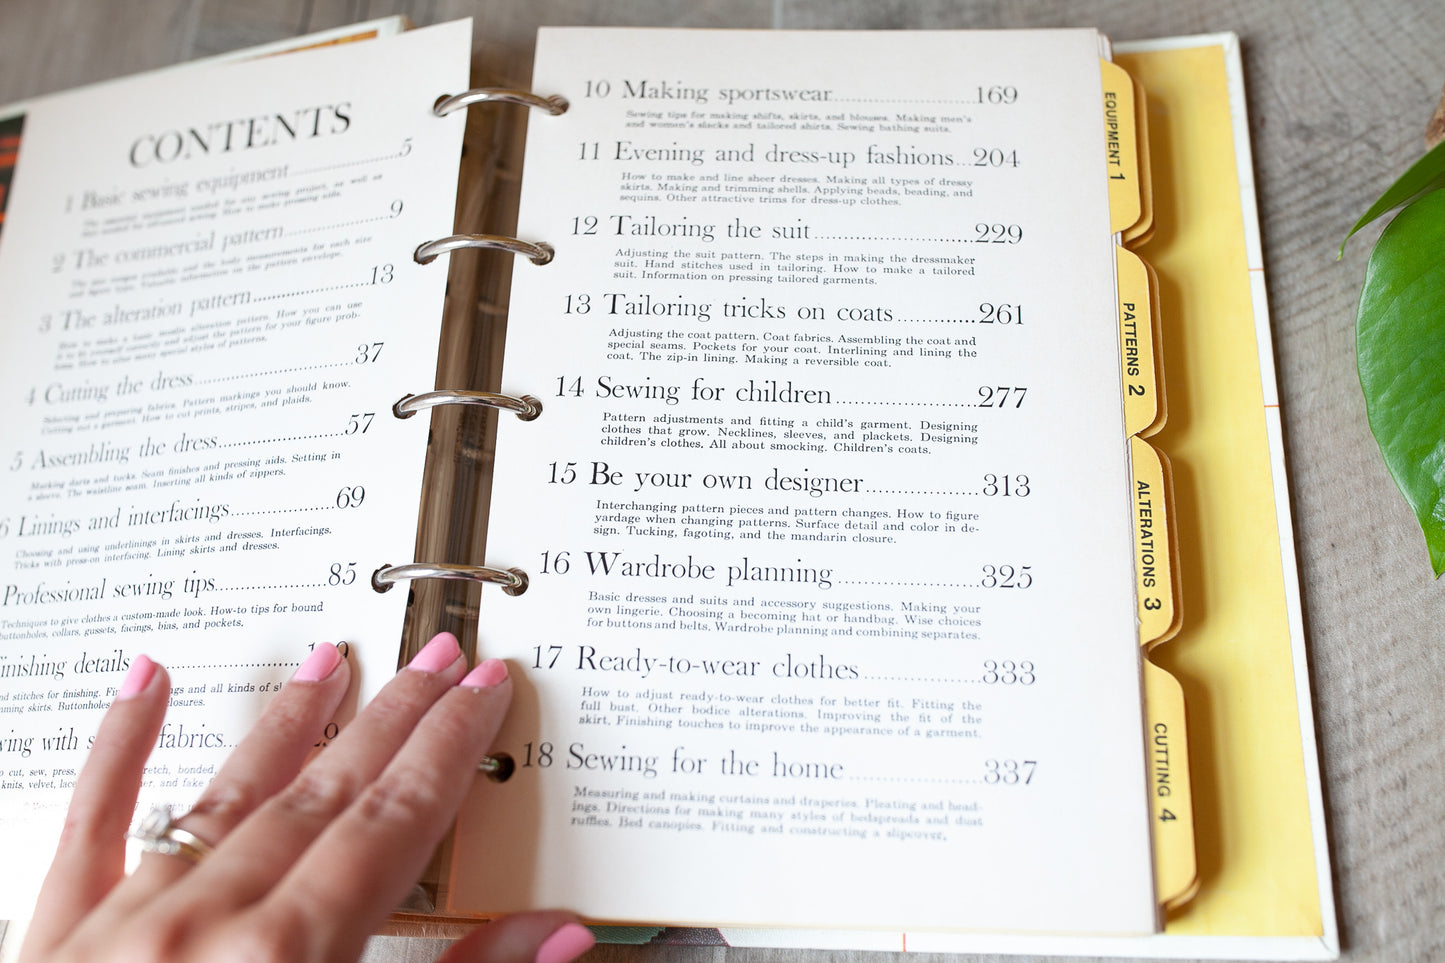 CONTENTS
1 Basic sewing equipment.....5
The essential equipment needed for any sewing project, as well as
that needed for advanced sewing. How to make pressing aids.
2 The commercial pattern.....9
The size ranges available and the body measurements for each size
and figure type. Valuable information on the pattern envelope.
3 The alteration pattern.....13
How to make a basic muslin alteration pattern. How you can use
it to fit yourself correctly and adjust the pattern for your figure prob-
lems. How to alter many special styles of patterns.
4 Cutting the dress.....37
Selecting and preparing fabrics. Pattern markings you should know.
Cutting out a garment. How to cut prints, stripes, and plaids.
5 Assembling the dress.....57
Marking darts and tucks. Seam finishes and pressing aids. Setting in
a sleeve. The waistline seam. Inserting all kinds of zippers.
6 Linings and interfacings.....69
Choosing and using underlinings in skirts and dresses. Interfacings.
Tricks with press-on interfacing. Lining skirts and dresses.
Professional sewing tips.....85
Techniques to give clothes a custom-made look. How-to tips for bound
buttonholes, collars, gussets, facings, bias, and pockets.
inishing details
nd stitches for finishing. and all kinds of
ming skirts. Buttonholes closures.
wing with fabrics...
o cut, sew, press, stretch, bonded,
knits, velvet, lace and fake
10 Making sportswear.....169
Sewing tips for making shifts, skirts, and blouses. Making men's
and women's slacks and tailored shirts. Sewing bathing suits.
11 Evening and dress-up fashions...204
How to make and line sheer dresses. Making all types of dressy
skirts. Making and trimming shells. Applying beads, beading, and
sequins. Other attractive trims for dress-up clothes.
12 Tailoring the suit.....229
Adjusting the suit pattern. The steps in making the dressmaker
suit. Hand stitches used in tailoring. How to make a tailored
suit. Information on pressing tailored garments.
13 Tailoring tricks on coats.....261
Adjusting the coat pattern. Coat fabrics. Assembling the coat and
special seams. Pockets for your coat. Interlining and lining the
coat. The zip-in lining. Making a reversible coat.
14 Sewing for children.....277
Pattern adjustments and fitting a child's garment. Designing
clothes that grow. Necklines, sleeves, and plackets. Designing
children's clothes. All about smocking. Children's coats.
15 Be your own designer.....313
Interchanging pattern pieces and pattern changes. How to figure
yardage when changing patterns. Surface detail and color in de-
sign. Tucking, fagoting, and the mandarin closure.
16 Wardrobe planning.....325
Basic dresses and suits and accessory suggestions. Making your
own lingerie. Choosing a becoming hat or handbag. Wise choices
for buttons and belts. Wardrobe planning and combining separates.
17 Ready-to-wear clothes.....333
How to adjust ready-to-wear clothes for better fit. Fitting the
full bust. Other bodice alterations. Improving the fit of the
skirt. Finishing touches to improve the appearance of a garment.
18 Sewing for the home.....337
Measuring and making curtains and draperies. Pleating and head-
ings. Directions for making many styles of bedspreads and dust
ruffles. Bed canopies. Fitting and constructing a slipcover.
EQUIPMENT 1
PATTERNS 2
ALTERATIONS 3
CUTTING 4